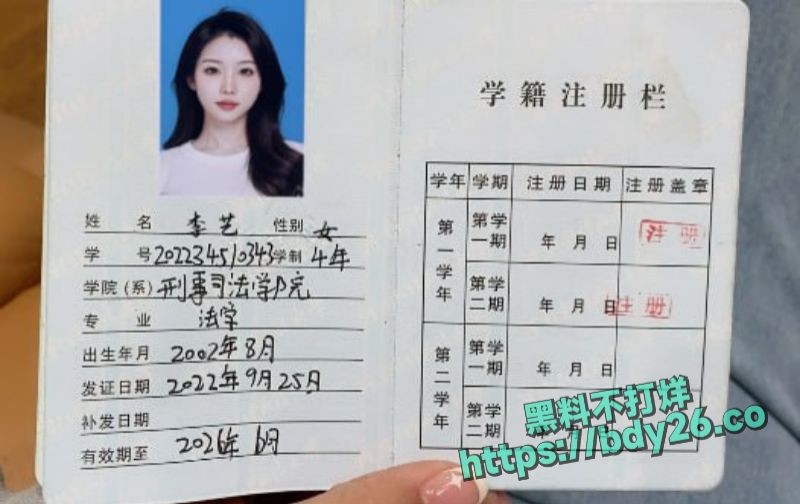 姓 名 李艺 性别 女
学 号 202234510343 学制 4年
学院（系） 刑事司法学院
专 业 法学
出生年月 2002年8月
发证日期 2022年9月25日
补发日期
有效期至 2026年6月
学籍注册栏
学年 学期 注册日期 注册盖章
第一学年 第学一期 年 月 日 注册
第学二期 年 月 日 注册
第二学年 第学一期 年 月 日
第学二期 年 月 日
黑料不打烊
https://bdy26.co